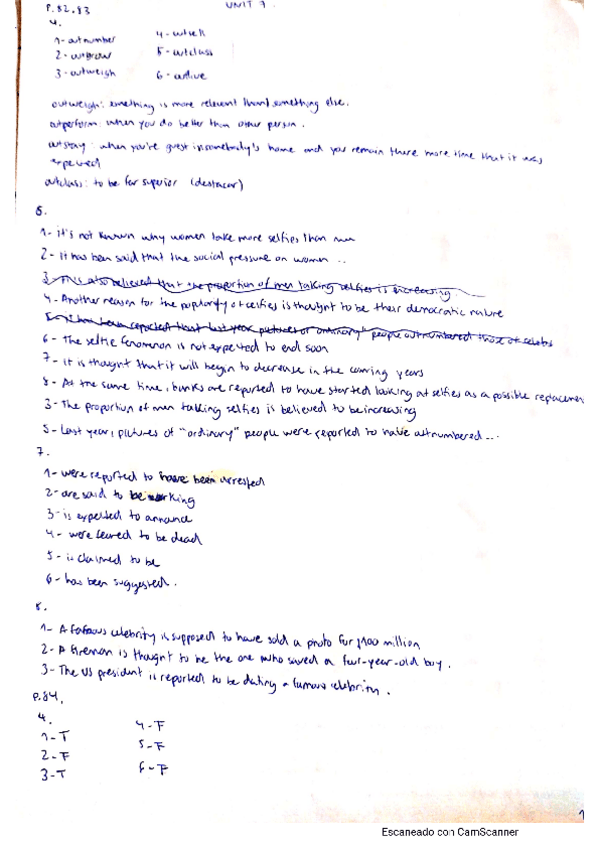 P.82.83 UNIT 7.
4.
1- outnumber 4- outsell
2- outgrow 5- outclass
3- outweigh 6- outlive
outweigh: something is more relevent than something else.
outperform: when you do better than other person.
outstay: when you're guest in somebody's home and you remain there more time that it was
expected
outclass: to be far superior (destacar)
6.
1- it's not known why women take more selfies than men
2- It has been said that the social pressure on women ...
3- It is also believed that the proportion of men talking selfies is increasing
4- Another reason for the popularity of selfies is thought to be their democratic nature
5- It has been reported that last year pictures of "ordinary" people outnumbered those of celebs
6- The selfie fenomenon is not expected to end soon
7- it is thought that it will begin to decrease in the coming years
8- At the same time, banks are reported to have started looking at selfies as a possible replacemen
3- The proportion of men talking selfies is believed to be increasing
5- Last year, pictures of "ordinary" people were reported to have outnumbered ...
7.
1- were reported to have been arrested
2- are said to be working
3- is expected to announce
4- were feared to be dead
5- is claimed to be
6- has been suggested.
8.
1- A famous celebrity is supposed to have sold a photo for $100 million
2- A fireman is thought to be the one who saved a four-year-old boy.
3- The US president is reported to be dating a famous celebrity.
P.84.
4.
1- T 4- F
2- F 5- F
3- T 6- F
1
Escaneado con CamScanner